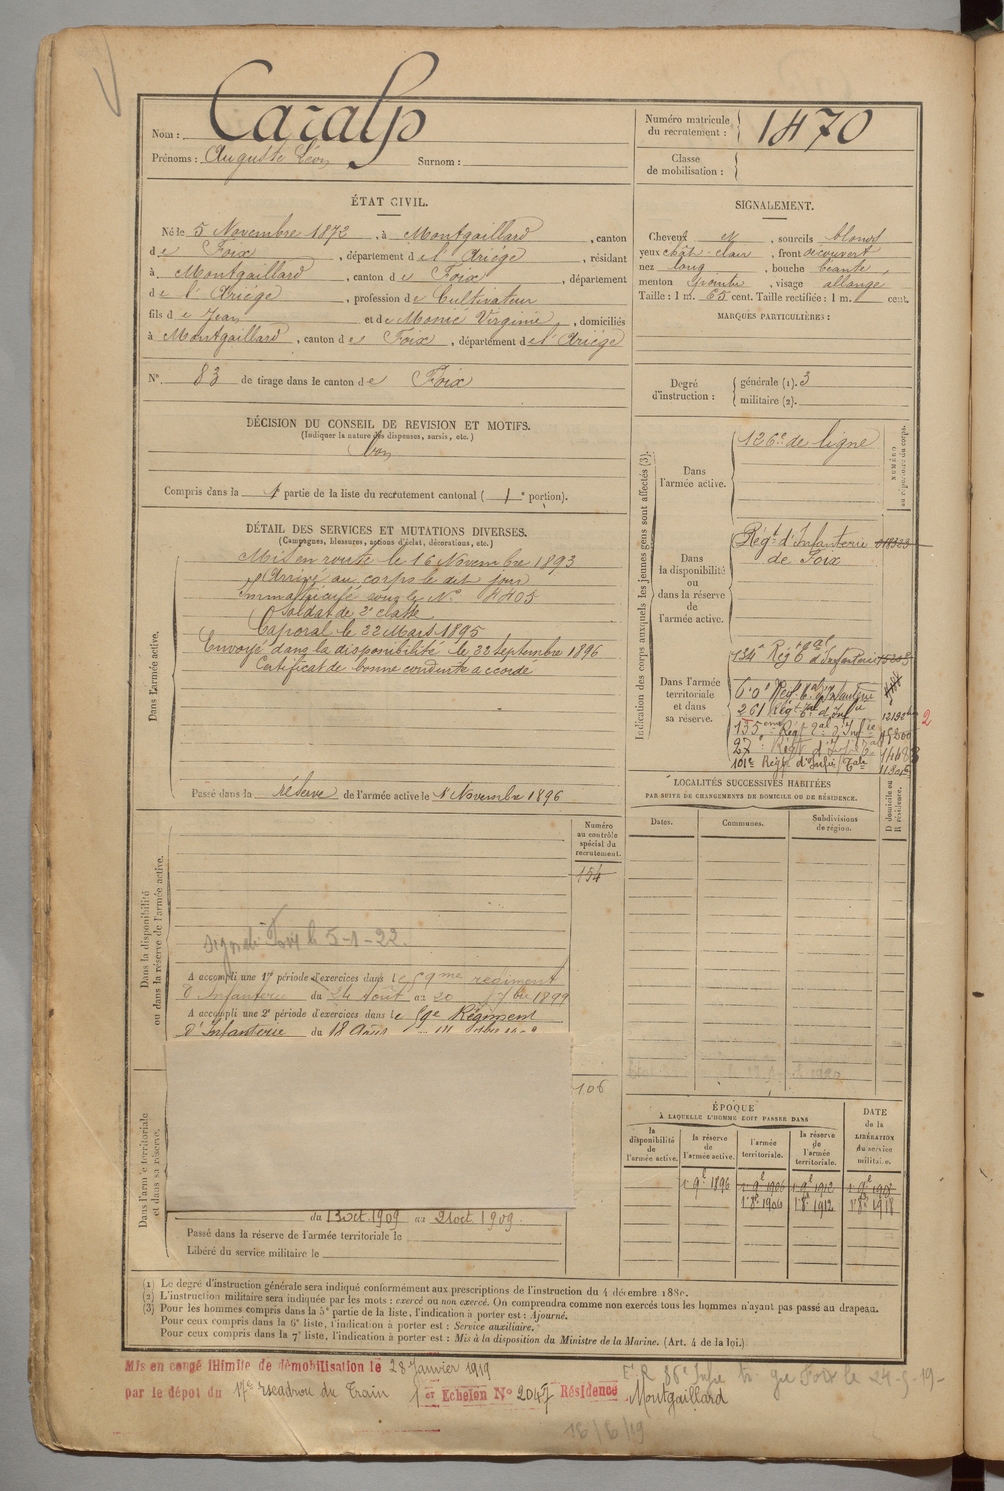 Nom : Caralp
Prénoms : Auguste Léon Surnom :
Numéro matricule du recrutement : 1470
Classe de mobilisation :
ÉTAT CIVIL.
Né le 5 Novembre 1872, à Montgaillard, canton
de Foix, département de l'Ariège, résidant
à Montgaillard, canton de Foix, département
de l'Ariège, profession de Cultivateur
fils de Jean et de Monié Virginie, domiciliés
à Montgaillard, canton de Foix, département de l'Ariège
N° 83 de tirage dans le canton de Foix
SIGNALEMENT.
Cheveux et, sourcils blonds
yeux chât-clair, front découvert
nez long, bouche béante,
menton pointu, visage allongé
Taille : 1 m. 65 cent. Taille rectifiée : 1 m. cent.
MARQUES PARTICULIÈRES :
Degré d'instruction : générale (1). 3
militaire (2).
DÉCISION DU CONSEIL DE REVISION ET MOTIFS.
(Indiquer la nature des dispenses, sursis, etc.)
Bon
Compris dans la 1 partie de la liste du recrutement cantonal (1e portion).
DÉTAIL DES SERVICES ET MUTATIONS DIVERSES.
(Campagnes, blessures, actions d'éclat, décorations, etc.)
Dans l'armée active.
Mis en route le 16 Novembre 1893
Arrivé au corps le dit jour
Immatriculé sous le N° 4405
Soldat de 2e classe
Caporal le 22 Mars 1895
Envoyé dans la disponibilité le 22 septembre 1896
Certificat de bonne conduite accordé
Passé dans la réserve de l'armée active le 1 Novembre 1896
Indication des corps auxquels les jeunes gens sont affectés (3).
Dans l'armée active.
126e de ligne
NUMÉRO au répertoire du corps.
Dans la disponibilité ou dans la réserve de l'armée active.
Régt d'Infanterie
de Foix
Dans l'armée territoriale et dans sa réserve.
134e Rég tal d'Infanterie
60e Régt tal d'Infanterie
261 Régt tal d'Infie
135eme Régt tal d'Infie
27e Régt d'Infie Tal
101e Régt d'Infie Tale
2
LOCALITÉS SUCCESSIVES HABITÉES
PAR SUITE DE CHANGEMENTS DE DOMICILE OU DE RÉSIDENCE.
Dates. Communes. Subdivisions de région. D domicile ou R résidence.
Dans la disponibilité ou dans la réserve de l'armée active.
Numéro au contrôle spécial du recrutement.
154
Foix le 5-1-22.
A accompli une 1re période d'exercices dans le 59me régiment
d'Infanterie du 24 Août au 20 7bre 1899
A accompli une 2e période d'exercices dans le 59e Régiment
d'Infanterie du 18 Août
Dans l'armée territoriale et dans sa réserve.
106
du 13 oct. 1909 au 21 oct. 1909.
Passé dans la réserve de l'armée territoriale le
Libéré du service militaire le
ÉPOQUE
À LAQUELLE L'HOMME DOIT PASSER DANS
la disponibilité de l'armée active. la réserve de l'armée active. l'armée territoriale. la réserve de l'armée territoriale.
DATE de la LIBÉRATION du service militaire.
1 9e 1896 1 9e 1906 1 9e 1912 1 9e 1918
1 8e 1906 1 8e 1912 1 8e 1918
(1) Le degré d'instruction générale sera indiqué conformément aux prescriptions de l'instruction du 4 décembre 1889.
(2) L'instruction militaire sera indiquée par les mots : exercé ou non exercé. On comprendra comme non exercés tous les hommes n'ayant pas passé au drapeau.
(3) Pour les hommes compris dans la 5e partie de la liste, l'indication à porter est : Ajourné.
Pour ceux compris dans la 6e liste, l'indication à porter est : Service auxiliaire.
Pour ceux compris dans la 7e liste, l'indication à porter est : Mis à la disposition du Ministre de la Marine. (Art. 4 de la loi.)
Mis en congé illimité de démobilisation le 28 Janvier 1919
par le dépot du 17e Escadron du Train 1er Echelon N° 2047 Résidence Montgaillard
Foix le 24-5-19-
16/6/19